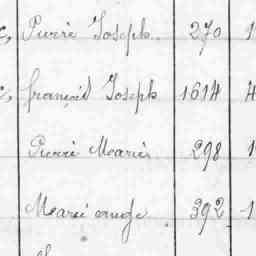 Pierre Joseph. 270 1
françois Joseph 1614 4
Pierre Marie 298 1
Marie ange 392 1